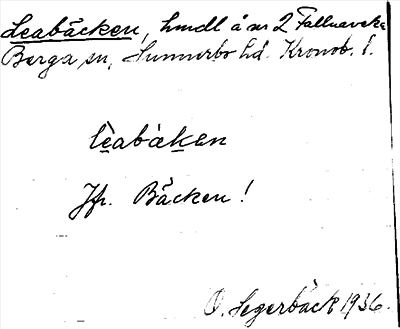 Leabäcken, hmdl å nr 2 Fallnaveka
Berga sn, Sunnerbo hd. Kronob. l.
lèabàken
Jfr. Bäcken!
O. Segerbäck 1936.